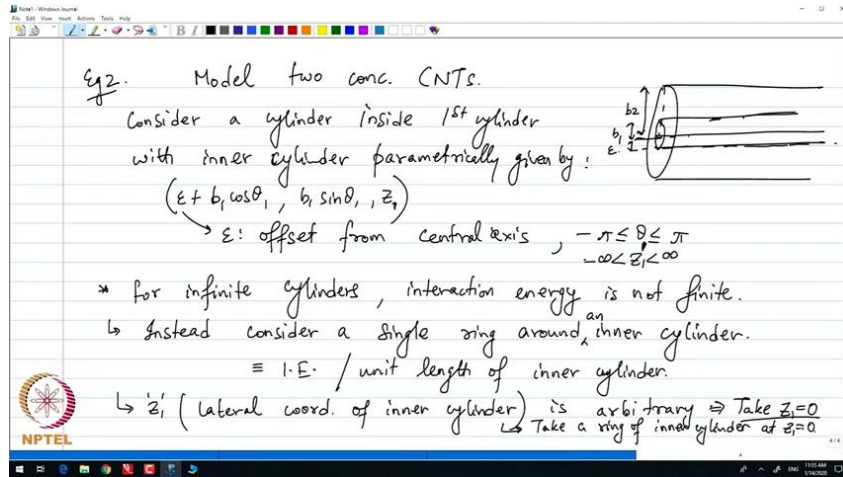 Note1 - Windows Journal
File Edit View Insert Actions Tools Help
Eg2. Model two conc. CNTs.
Consider a cylinder inside 1st cylinder
with inner cylinder parametrically given by :
(ε + b₁ cosθ₁ , b₁ sinθ₁ , z₁)
ε : offset from central axis , -π ≤ θ₁ ≤ π
-∞ < z₁ < ∞
b2
b₁
ε
* for infinite cylinders , interaction energy is not finite.
↳ Instead consider a single ring around an inner cylinder.
≡ I.E. / unit length of inner cylinder.
↳ 'z₁' ( lateral coord. of inner cylinder ) is arbitrary ⇒ Take z₁=0
↳ Take a ring of inner cylinder at z₁=0
NPTEL
4/4
ENG
11:55 AM
1/14/2020